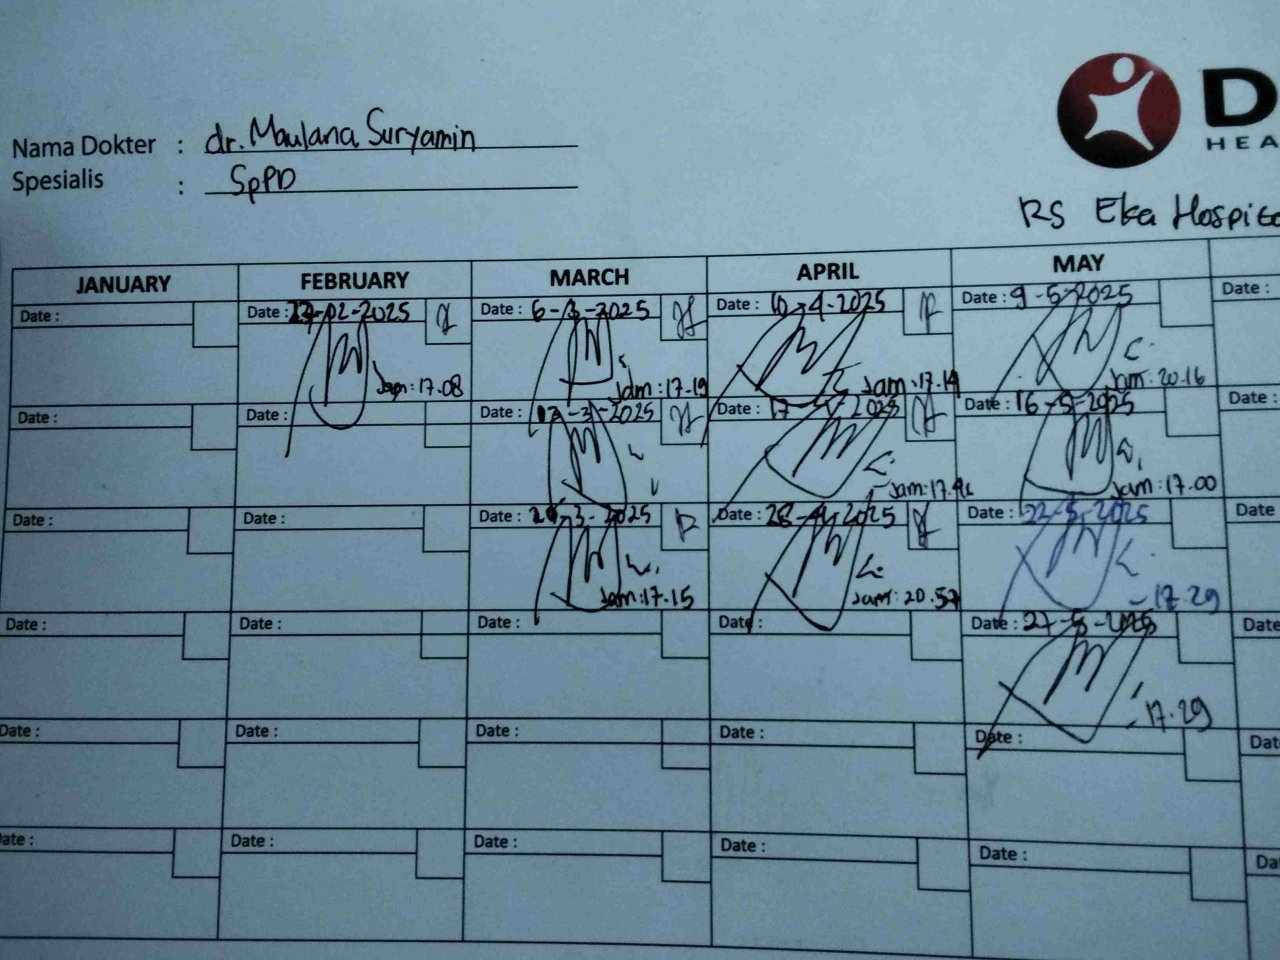 D
HEA
Nama Dokter : dr. Maulana Suryamin
Spesialis : SpPD
RS Eka Hospita
JANUARY FEBRUARY MARCH APRIL MAY
Date : Date : -02-2025 Date : 6-3-2025 Date : 10-4-2025 Date : 9-5-2025 Date :
Jam: 17.08 Jam: 17.19 Jam: 17.19 Jam: 20.16
Date : Date : Date : 13-3-2025 Date : 17- -2025 Date : 16-5-2025 Date :
Jam: 17. Jam: 17.00
Date : Date : Date : -3-2025 Date : 28-4-2025 Date : 22-5-2025 Date
Jam: 17.15 Jam: 20.57 17.29
Date : Date : Date : Date : Date : 27-5-2025 Date
17.29
Date : Date : Date : Date : Date : Dat
ate : Date : Date : Date : Date : Da